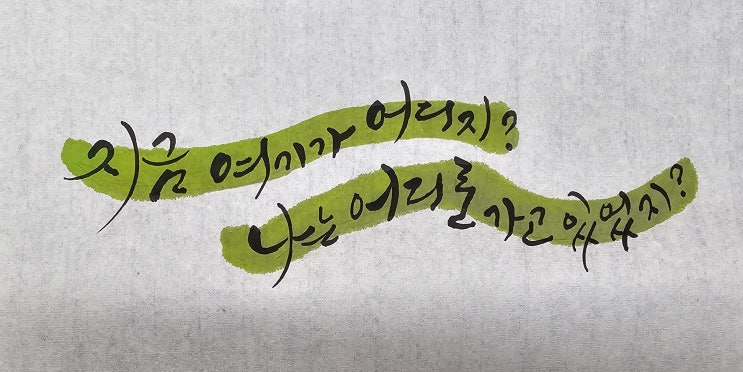 지금 여기가 어디지?
나는 어디를 가고 있었지?